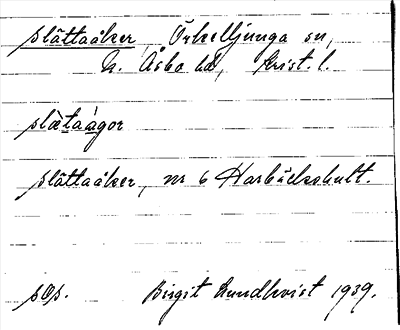 slättaåker, Örkelljunga sn,
N. Åsbo hd, Krist. l.
slὲtaàgor
slättaåker, nr 6 Harbäckshult.
Birgit Lundkvist 1939.